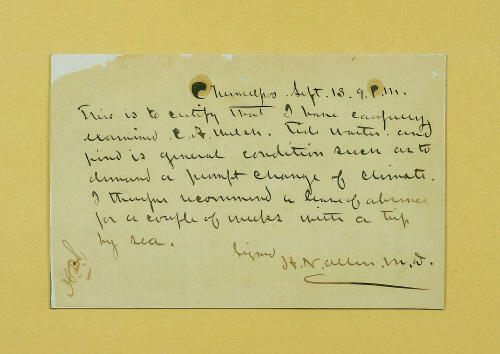 Chemulpo. Sept. 18. 9. P.m.
This is to certify that I have carefully
examined C. A. Welsh. Tide waiter. and
find is general condition such as to
demand a prompt change of climate.
I therefore recommend a leave of absence
for a couple of weeks with a trip
by sea.
Signed
H. N. Allen. M. D.